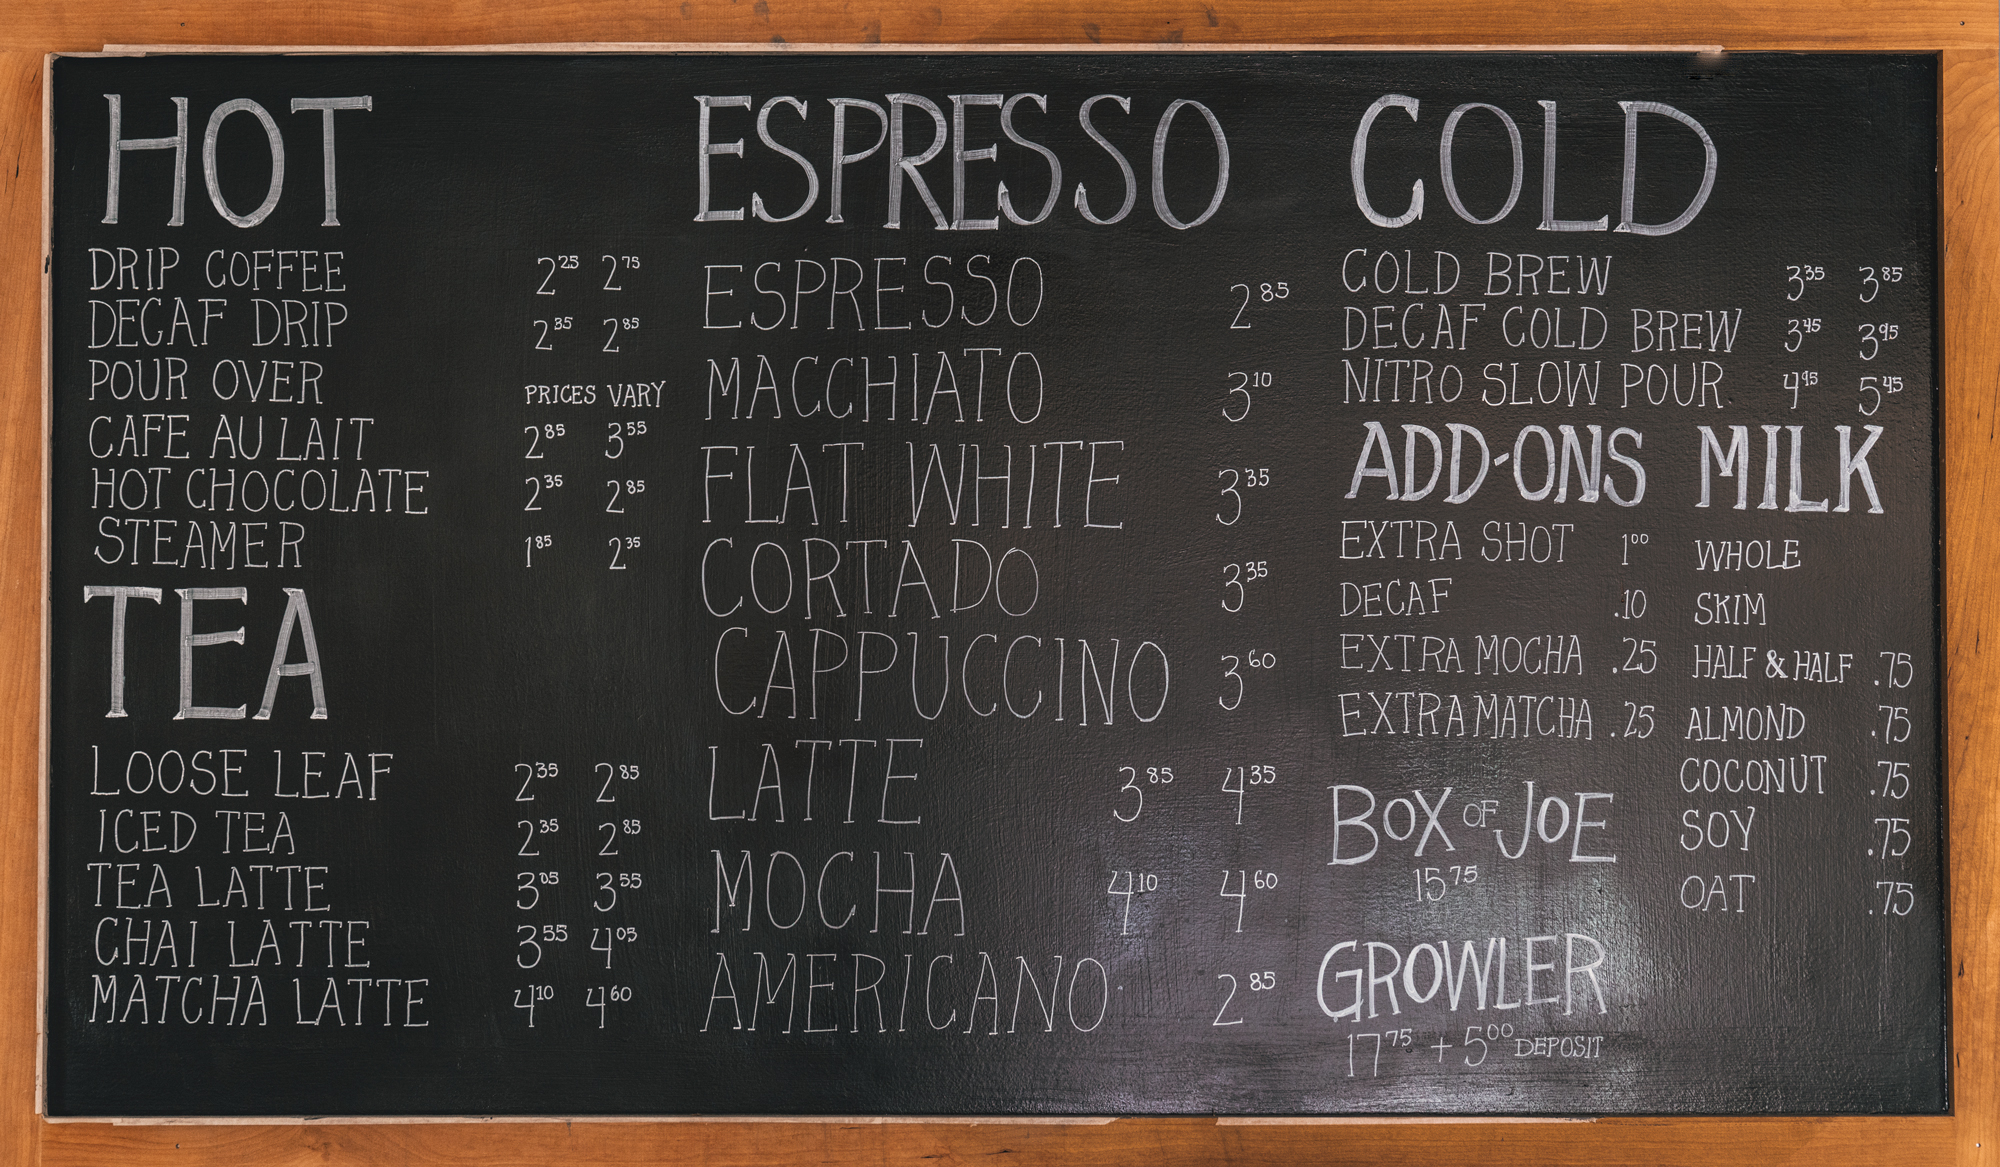 HOT
DRIP COFFEE 2 25 2 75
DECAF DRIP 2 35 2 85
POUR OVER PRICES VARY
CAFE AU LAIT 2 85 3 55
HOT CHOCOLATE 2 35 2 85
STEAMER 1 85 2 35
TEA
LOOSE LEAF 2 35 2 85
ICED TEA 2 35 2 85
TEA LATTE 3 05 3 55
CHAI LATTE 3 55 4 05
MATCHA LATTE 4 10 4 60
ESPRESSO
ESPRESSO 2 85
MACCHIATO 3 10
FLAT WHITE 3 35
CORTADO 3 35
CAPPUCCINO 3 60
LATTE 3 85 4 35
MOCHA 4 10 4 60
AMERICANO 2 85
COLD
COLD BREW 3 35 3 85
DECAF COLD BREW 3 45 3 95
NITRO SLOW POUR 4 95 5 45
ADD-ONS
EXTRA SHOT 1 00
DECAF .10
EXTRA MOCHA .25
EXTRA MATCHA .25
BOX OF JOE
15 75
GROWLER
17 75 + 5 00 DEPOSIT
MILK
WHOLE
SKIM
HALF & HALF .75
ALMOND .75
COCONUT .75
SOY .75
OAT .75